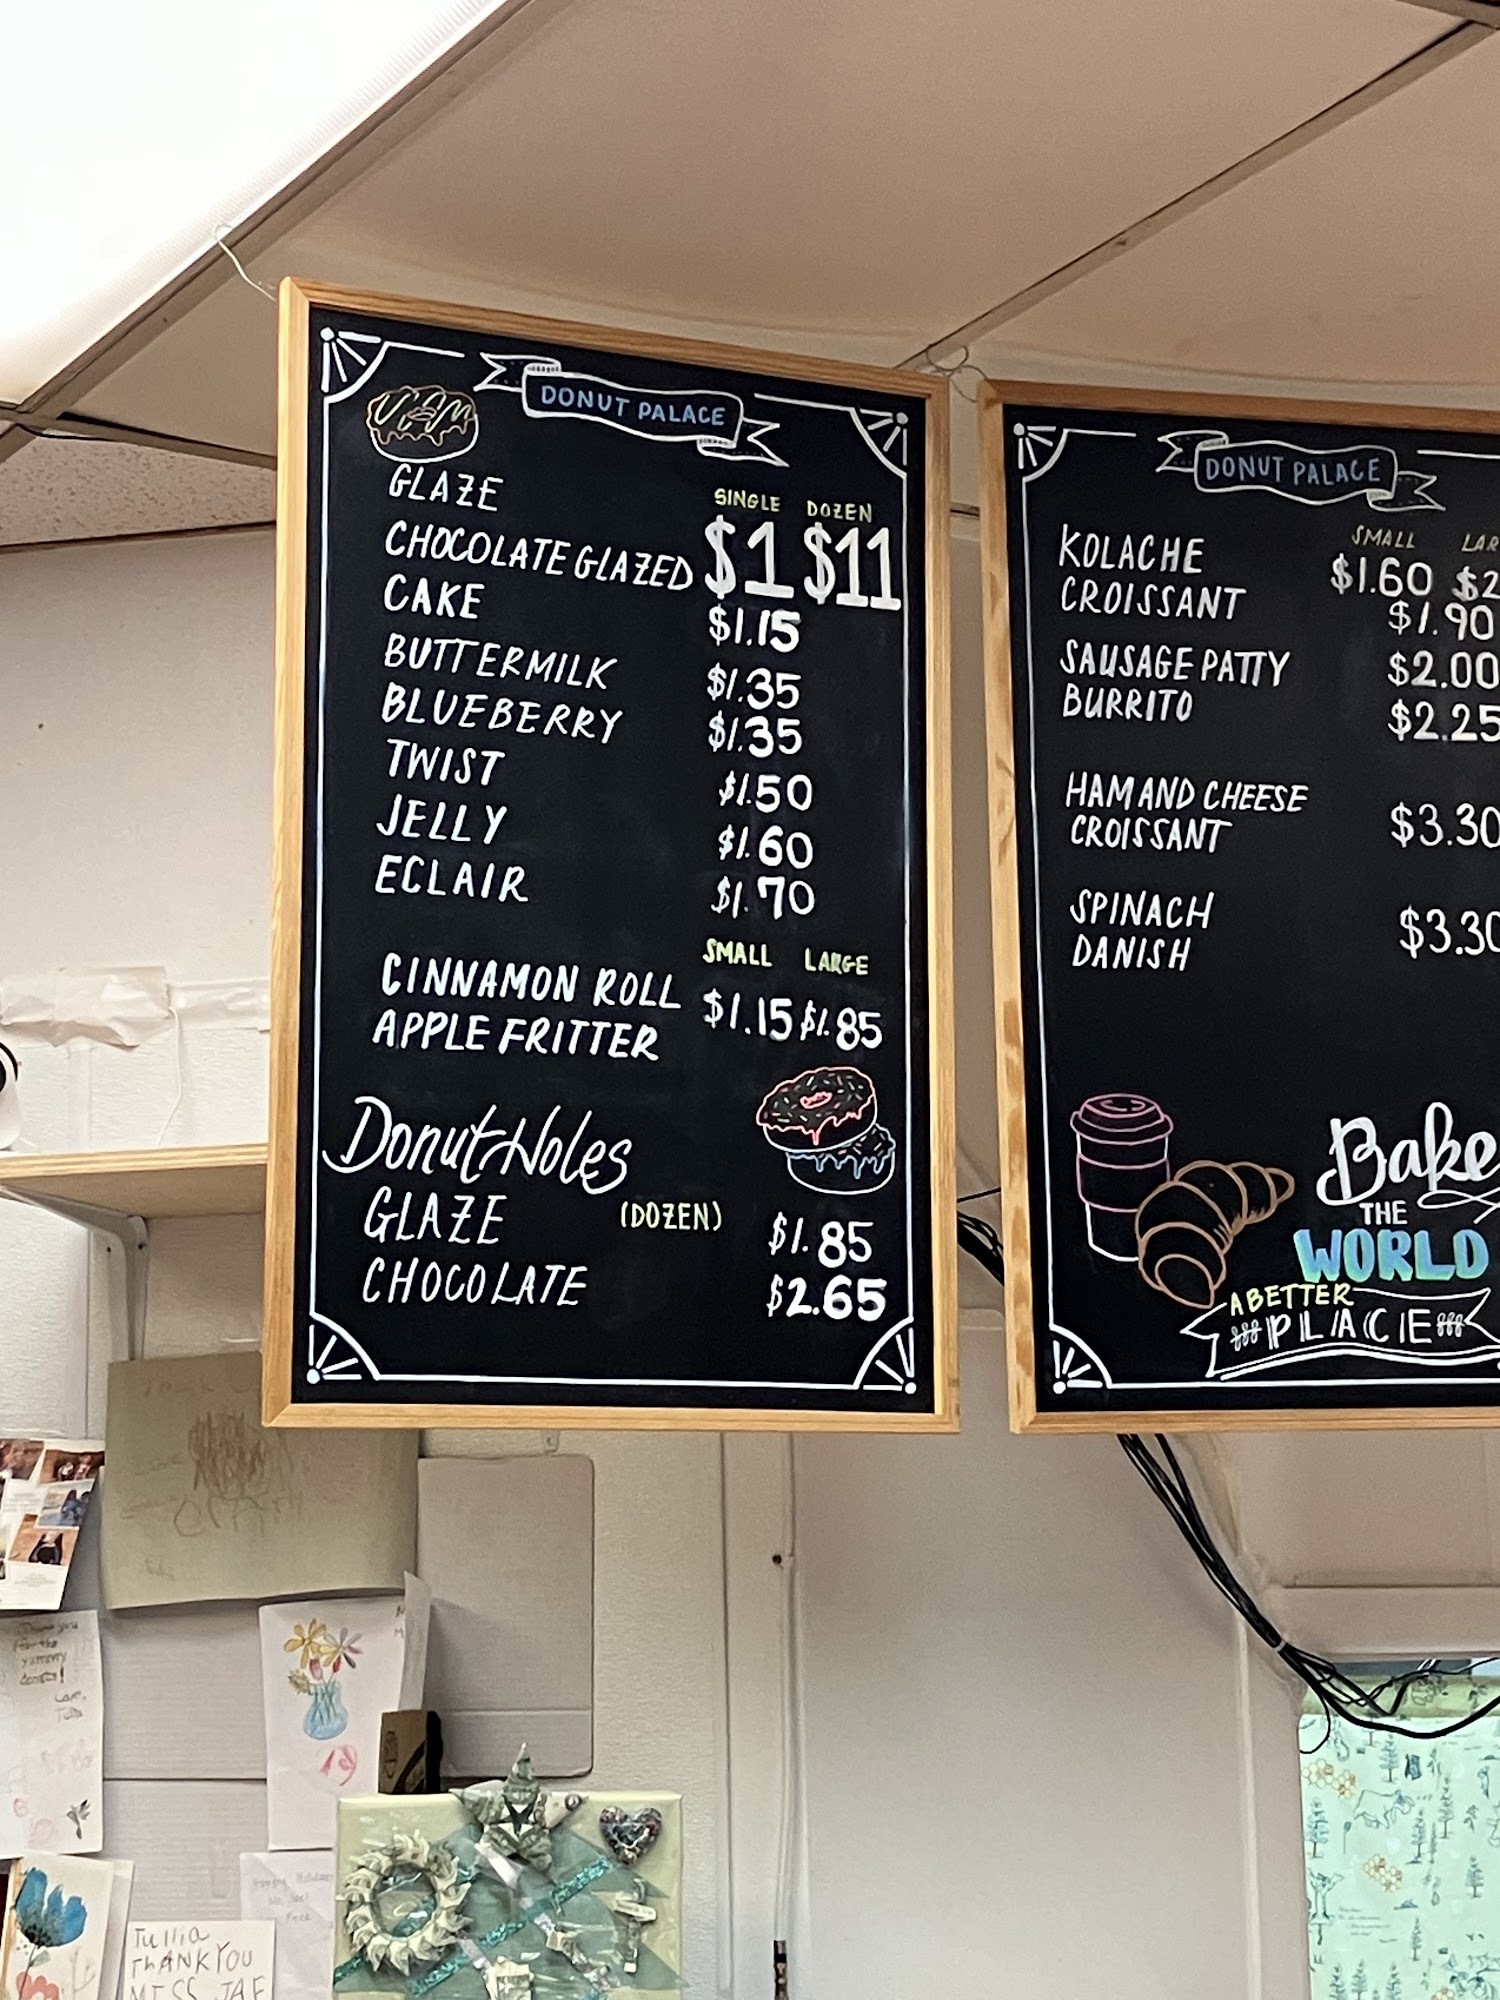 DONUT PALACE
GLAZE
SINGLE DOZEN
CHOCOLATE GLAZED $1 $11
CAKE $1.15
BUTTERMILK $1.35
BLUEBERRY $1.35
TWIST $1.50
JELLY $1.60
ECLAIR $1.70
SMALL LARGE
CINNAMON ROLL $1.15 $1.85
APPLE FRITTER
Donut Holes
GLAZE (DOZEN) $1.85
CHOCOLATE $2.65
DONUT PALACE
SMALL
KOLACHE $1.60
CROISSANT $1.90
SAUSAGE PATTY $2.00
BURRITO $2.25
HAM AND CHEESE
CROISSANT $3.30
SPINACH
DANISH $3.30
Bake
THE
WORLD
A BETTER
PLACE
Thank you
for the
yummy
donuts!
Love,
Tullia
Tullia
THANK YOU
MISS JAE